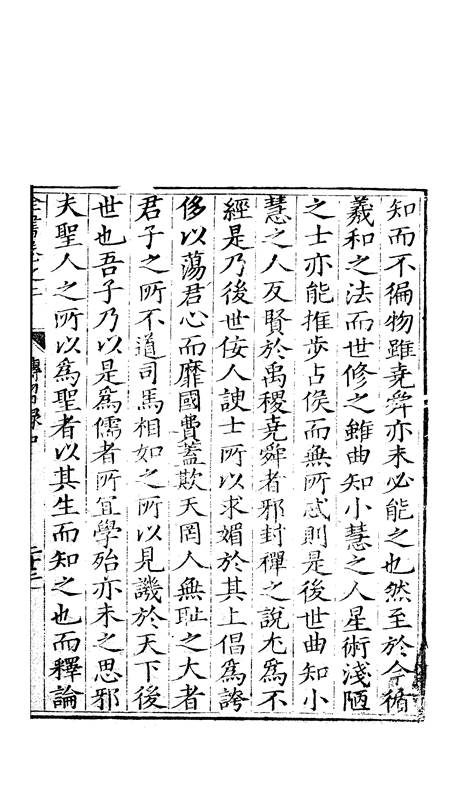 知而不徧物雖堯舜亦未必能之也然至於今循
羲和之法而世修之雖曲知小慧之人星術淺陋
之士亦能推步占侯而無所忒則是後世曲知小
慧之人反賢於禹稷堯舜者邪封禪之說尤爲不
經是乃後世佞人諛士所以求媚於其上倡爲誇
侈以蕩君心而靡國費蓋欺天罔人無恥之大者
君子之所不道司馬相如之所以見譏於天下後
世也吾子乃以是爲儒者所宜學殆亦未之思邪
夫聖人之所以爲聖者以其生而知之也而釋論
傳習錄中